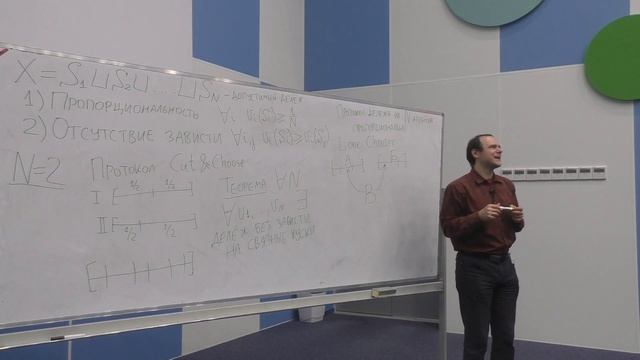 X = S₁ ⊔ S₂ ⊔ ... ⊔ S_N - допустимый делёж
1) Пропорциональность ∀i vᵢ(Sᵢ) ≥ 1/N
2) Отсутствие зависти ∀i,j vᵢ(Sᵢ) ≥ vᵢ(Sⱼ)
N=2 Протокол Cut & Choose
I 1/2 1/2
II 1/2 1/2
Теорема ∀N
∀ v₁, ... v_N ∃
делёж без зависти
на связные куски
Протокол дележа на N
пропорциональный
Lone Chooser
A B
B